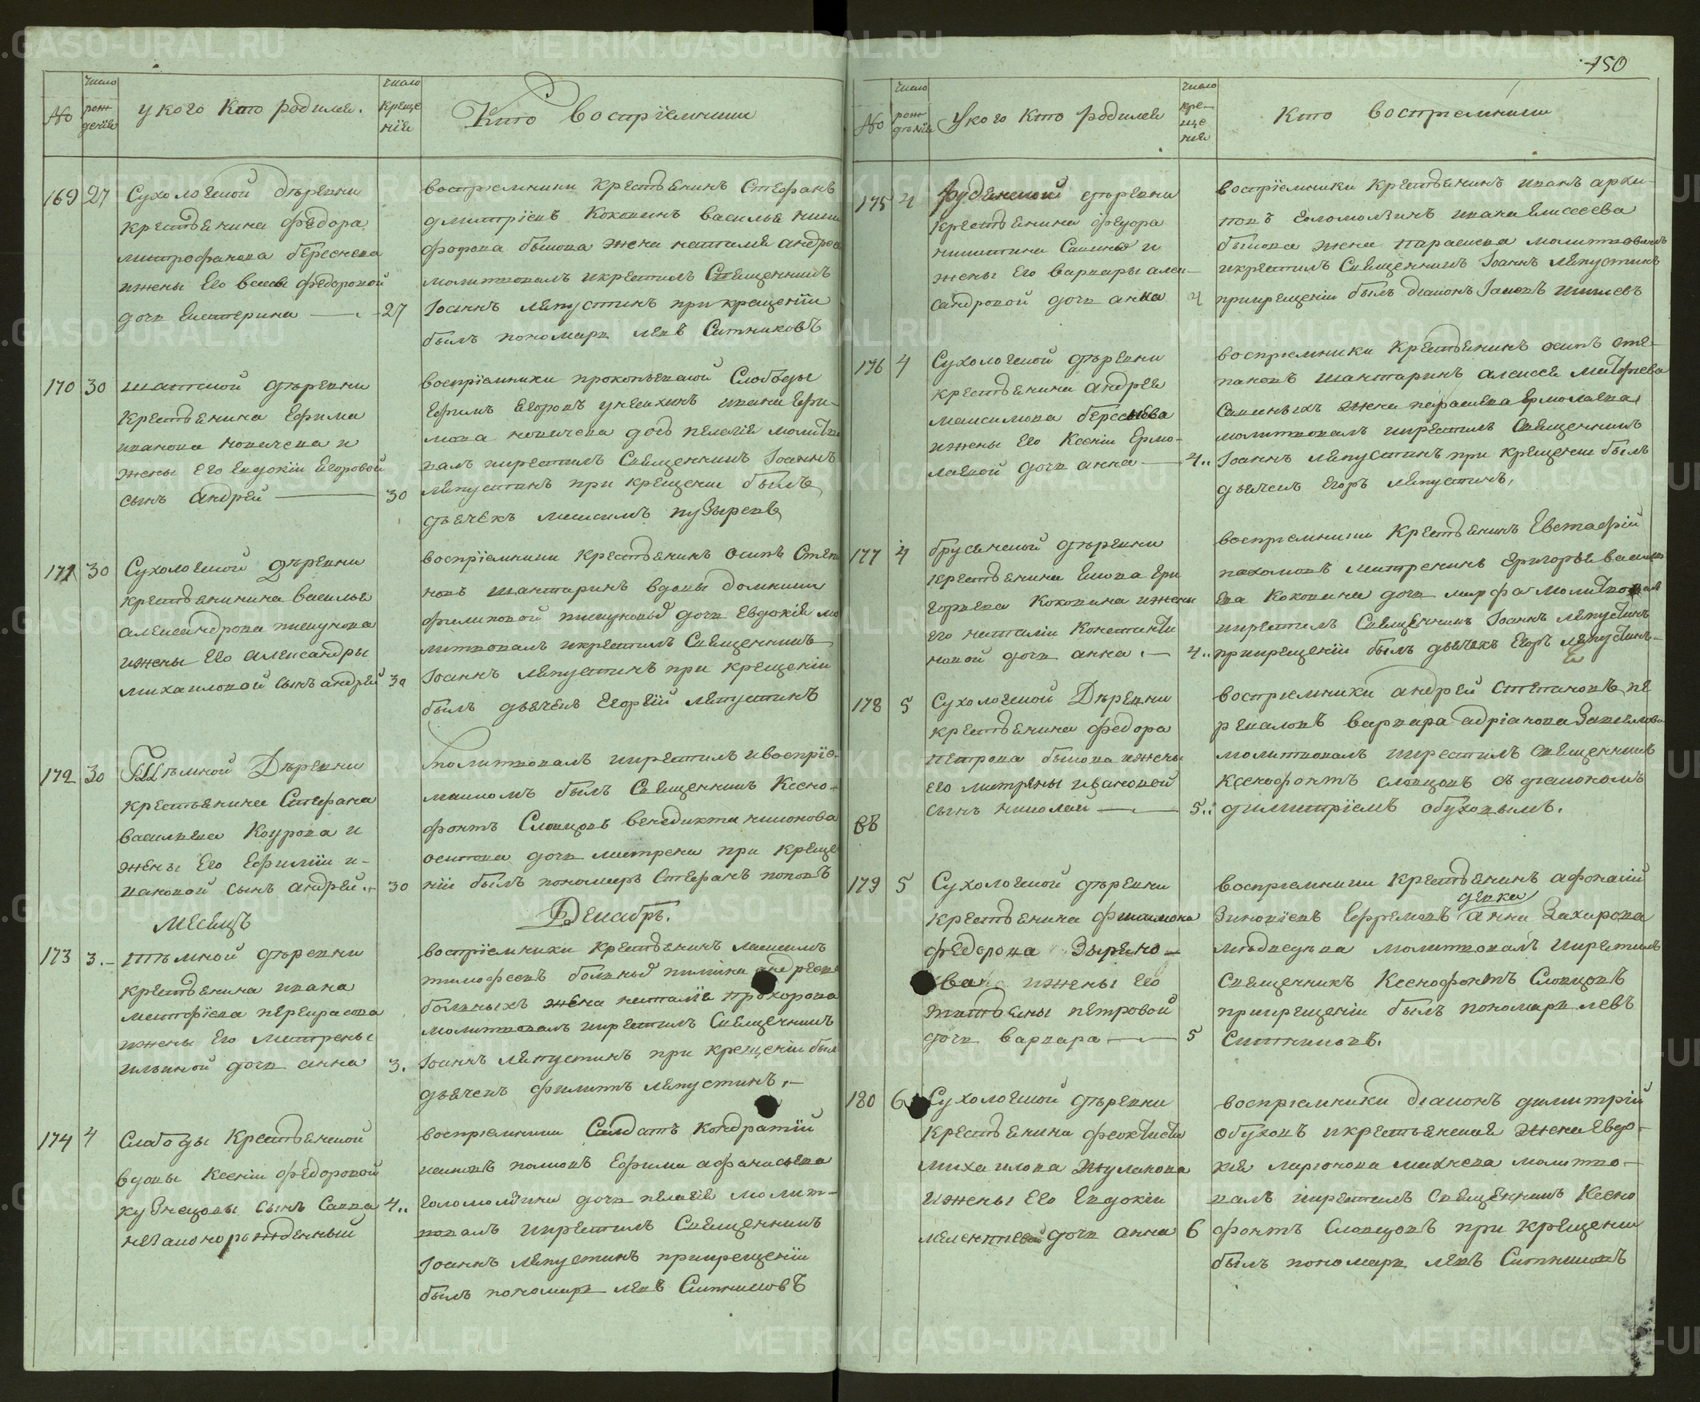 150
№
Число рождения
у кого кто родился.
число крещения
Кто воспріемники
169 27 Сухоложской дѣревни
крестьянина Федора
митрофанова береснева
и жены его Федоровой
дочь Екатерина — 27
воспріемники крестьянинъ Стефанъ
дмитріевъ Коковинъ василья
быкова жена наталья андрѣева
молитвовалъ и крестилъ Священникъ
Іоаннъ Ляпустинъ при крещеніи
былъ пономарь левъ Ситниковъ
170 30 шатской дѣревни
крестьянина Ефима
иванова и
жены его Евдокіи Егоровой
сынъ андрей — 30
воспріемники прокопьевской Слободы
Ефимъ Егоровъ ивана Ефи-
мова дочь пелагія молитво
валъ и крестилъ Священникъ Іоаннъ
Ляпустинъ при крещеніи былъ
дьячекъ максимъ пузыревъ
171 30 Сухоложской дѣревни
крестьянина василья
александрова
и жены его александры
михаиловой сынъ андрей 30
воспріемники крестьянинъ осипъ Степа
новъ шантаринъ вдовы домники
филиповой дочь Евдокія мо
литвовалъ и крестилъ Священникъ
Іоаннъ Ляпустинъ при крещеніи
былъ дьячекъ Егорій Ляпустинъ
172 30 дѣревни
крестьянина Стефана
васильева Коурова и
жены его Ефиміи и-
вановой сынъ андрей 30
молитвовалъ и крестилъ и воспріе-
мникомъ былъ Священникъ Ксено-
фонтъ Словцовъ венедикта
осипова дочь матрена при креще
ніи былъ пономарь Стефанъ поповъ
месецъ Декабрь.
173 3 дѣревни
крестьянина ивана
матфіева некрасова
и жены его Матрены
ильиной дочь анна 3.
воспріемники крестьянинъ максимъ
тимофеевъ
жена наталія прохорова
молитвовалъ и крестилъ Священникъ
Іоаннъ Ляпустинъ при крещеніи был
дьячекъ филипъ Ляпустинъ.
174 4 Слабоды крестьянской
вдовы Ксеніи федоровой
кузнецовы сынъ Савва 4..
незаконорожденный
воспріемники Салдатъ Кондратій
Ефима афанасьева
голомолзина дочь пелагія молит-
вовалъ и крестилъ Священникъ
Іоаннъ Ляпустинъ при крещеніи
былъ пономарь левъ Ситниковъ
№
Число рождѣнія
у кого кто родился
число крещенія
Кто воспріемники
175 4 Рудянской дѣревни
крестьянина федора
никитина и
жены его варвары алек-
сандровой дочь анна 4
воспріемники крестьянинъ иванъ архи-
повъ голомолзинъ ивана Елисеева
быкова жена параскева молитвовалъ
и крестилъ Священникъ Іоаннъ Ляпустинъ
при крещеніи былъ діаконъ Іаковъ
176 4 Сухоложской дѣревни
крестьянина андрея
максимова береснева
и жены его Ксеніи Ермо-
лаевой дочь анна — 4..
воспріемники крестьянинъ осипъ сте-
пановъ шантаринъ алексея Матфіева
жена параскева Ермолаева
молитвовалъ и крестилъ Священникъ
Іоаннъ Ляпустинъ при крещеніи былъ
дьячекъ Егоръ Ляпустинъ,
177 4 брусянской дѣревни
крестьянина Гри
горьева Коковина и жены
его наталіи Константи
новой дочь анна. — 4..
воспріемники крестьянинъ Евстафій
пахомовъ Григорья василь
ева Коковина дочь марфа молитвовалъ
и крестилъ Священникъ Іоаннъ Ляпустинъ
при крещеніи былъ дьячекъ Егоръ Ляпустинъ.
178 5 Сухоложской Дѣревни
крестьянина федора
петрова быкова и жены
его матрены ивановой
сынъ николай — 5..
воспріемники андрей степановъ пе
рваловъ варвара адріанова
молитвовалъ и крестилъ священникъ
Ксенофонтъ словцовъ съ діакономъ
димитріемъ обуховымъ.
179 5 Сухоложской дѣревни
крестьянина филимона
федорова Зыряно-
ва и жены его
татьяны петровой
дочь варвара — 5
воспріемники крестьянинъ афонасій
Зиновіевъ Ефремовъ девка анна Захарова
медведева молитвовалъ и крестилъ
Священникъ Ксенофонтъ Словцовъ
при крещеніи былъ пономарь левъ
Ситниковъ.
180 6 Сухоложской дѣревни
крестьянина феоктиста
михаилова жулакова
и жены его Евдокіи
мелентіевой дочь анна 6
воспріемники діаконъ димитрій
обуховъ и крестьянская жена Евдо-
кія ларіонова молитво-
валъ и крестилъ Священникъ Ксено
фонтъ Словцовъ при крещеніи
былъ пономарь левъ Ситниковъ
METRIKI.GASO-URAL.RU